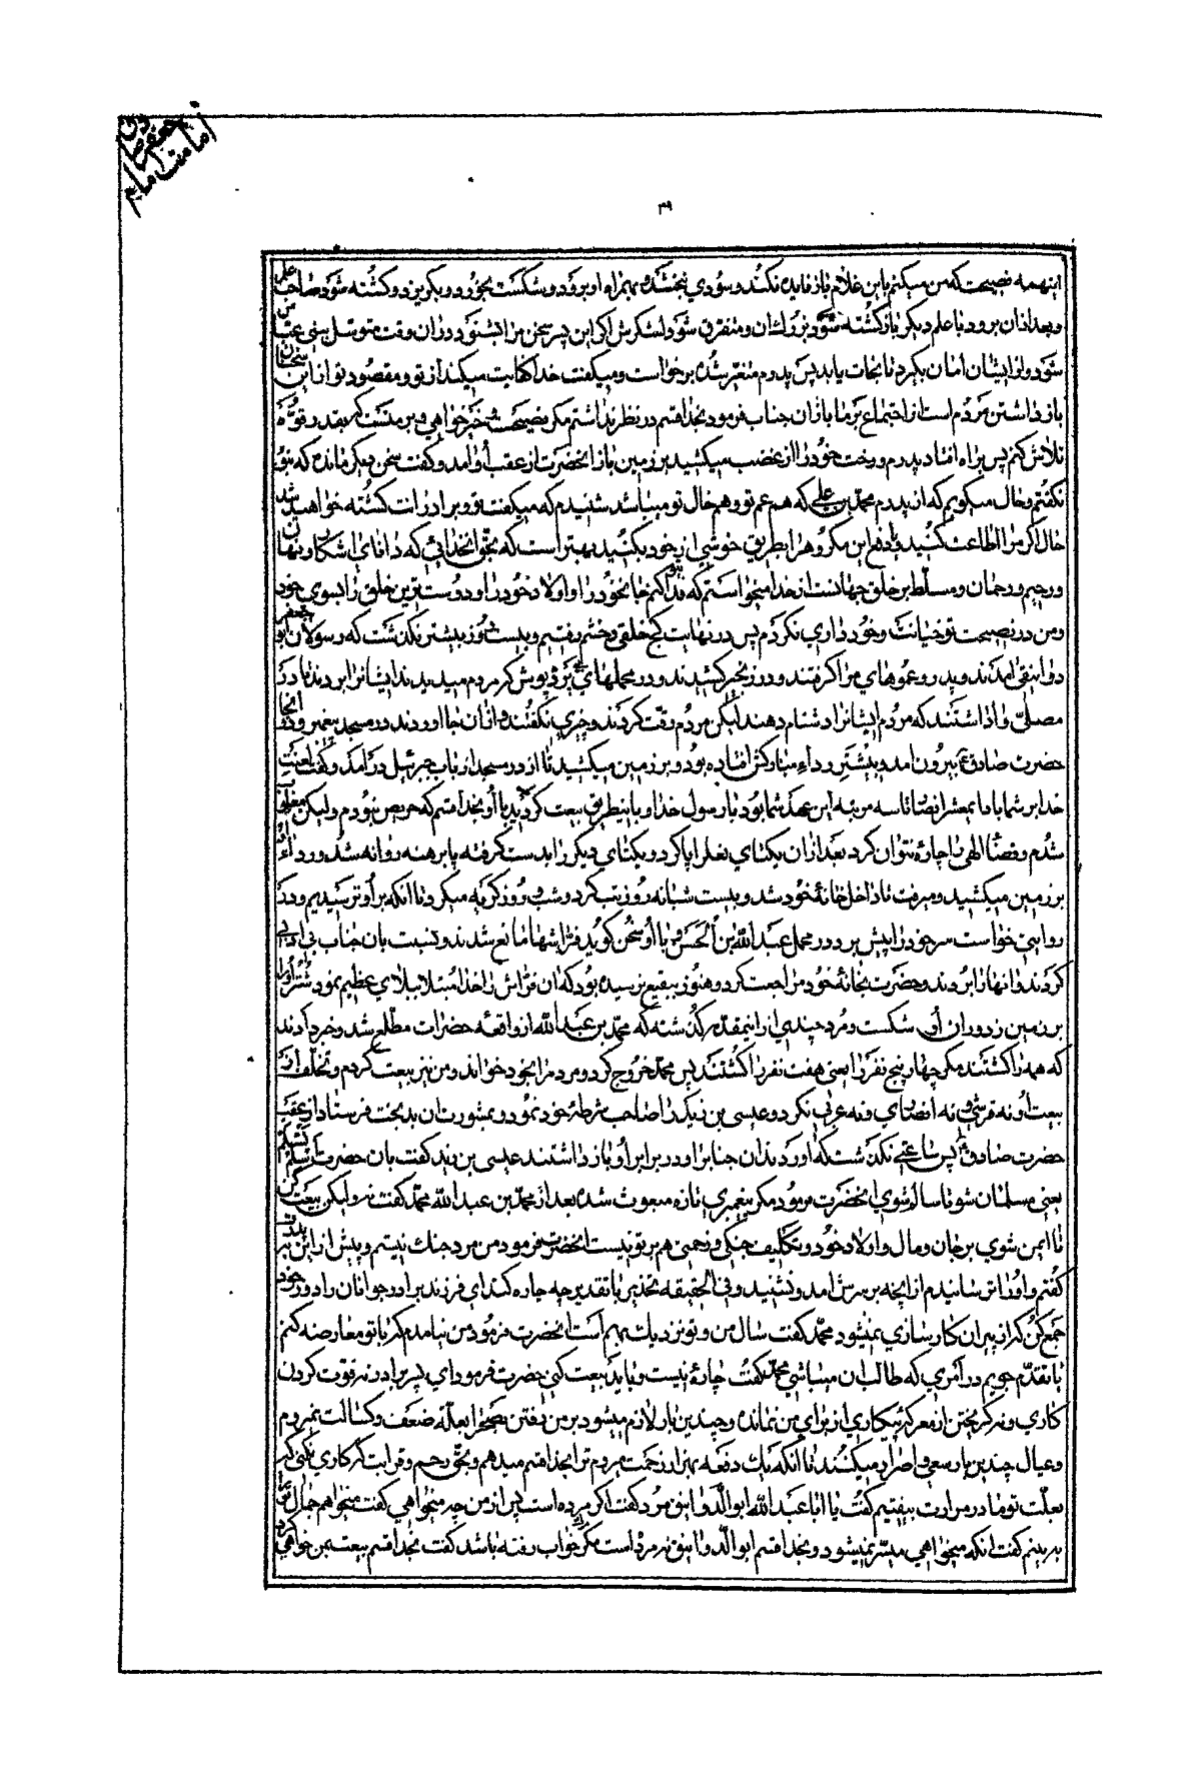 امامت امام
جعفر صادق
۳۹
اینهمه نصیحت که من میکنم با این غلام باز فایده نکند و سودی نبخشد همراه او برود و شکست بخورد و بگریزد و کشته شود صاحب علم
و بعد از ان برود با علم دیگر باز کشته شود بزرك ان و متفرق شود لشکرش اگر این پسر سخن مرا بشنود در ان وقت متوسل ببنی عباس
شود و از ایشان امان بگیرد تا نجات یابد پس پدرم متغیر شده برخواست و میگفت خدا کفایت میکند از تو و مقصود تو از این سخنان
باز داشتن مردم است از اجتماع بر ما باز ان جناب فرمود بخدا قسم در نظر نداشتم مگر نصیحت و خیر خواهی و بر منست که بقدر قوه
تلاش کنم پس براه افتاد پدرم و رخت خود را از غضب میکشید بر زمین باز انحضرت از عقب او امد و گفت سخن دیگر مانده که بتو
نگفتم و حال میگویم که از پدرم محمد بن علی که هم عم تو و هم خال تو میباشد شنیدم که میگفت تو و برادرانت کشته خواهید شد
حال اگر مرا اطاعت کنید و دفع این مکروه را بطریق خوشی از خود بکنید بهتر است که بحق انخدائی که دانای اشکار و نهان
و رحیم و رحمان و مسلط بر خلق جهانست از خدا میخواستم که فدا کنم جان خود را و اولاد خود را و دوست ترین خلق را بسوی خود
و من در نصیحت تو خیانت و خود داری نکردم پس در نهایت کج خلقی و خشم رفتیم و بیست روز بیشتر نگذشت که رسولان ابو جعفر
دوانیقی امدند و پدر و عموهای مرا گرفتند و در زنجیر کشیدند و در محملهای بی پرده پوش که مردم میدیدند ایشانرا بردند تا در
مصلی وا داشتند که مردم ایشانرا دشنام دهند لیکن مردم رقت کردند و چیزی نگفتند و از ان جا اوردند در مسجد پیغمبر و در انجا
حضرت صادق ع بیرون امد و بیشتر رداء مبارکش افتاده بود و بر زمین میکشید تا از در مسجد از باب جبرئیل در امد و گفت لعنت
خدا بر شما باد ایمعشر انصار تا سه مرتبه این عهد شما بود با رسول خدا و باینطریق بیعت کردید با او بخدا قسم که حریص نبودم و لیکن مغلوب
شدم و قضا الهی را چاره نتوان کرد بعد از ان یکتای نعل را پا کرد و یکتای دیگر را بدست گرفته پا برهنه روانه شد و رداء او
بر زمین میکشید و میرفت تا داخل خانهٔ خود شد و بیست شبانه روز تب کرد و شب و روز گریه میکرد تا انکه بر او ترسیدیم و در
روایتی خواست سر خود را پیش برد در محمل عبد الله بن الحسن و با او سخن گوید فراشها مانع شدند و نسبت بان جناب بی ادبی
کردند و انها را بردند و حضرت بخانهٔ خود مراجعت کرد و هنوز ببقیع نرسیده بود که ان فراش را خدا مبتلا ببلای عظیم نمود شتر او را
بر زمین زد و ران او شکست و مرد چندی از اینمقدمه گذشته که محمد بن عبد الله از واقعهٔ حضرات مطلع شد و خبر دادند
که همه را کشتند مگر چهار پنج نفر را یعنی هفت نفر را کشتند پس محمد خروج کرد و مردم را بخود خواند و من نیز بیعت کردم و تخلف از
بیعت او نه قرشی و نه انصاری و نه عربی نکرد و عیسی بن زید را صاحب شرطهٔ خود نمود و بمشورت ان بدبخت فرستاد از عقب
حضرت صادق ع پس ساعتی نگذشت که اوردند ان جنابرا و در برابر او باز داشتند عیسی بن زید گفت بان حضرت اسلم تسلم
یعنی مسلمان شو تا سالم شوی انحضرت فرمود مگر پیغمبری تازه مبعوث شده بعد از محمد بن عبد الله محمد گفت نه و لیکن بیعت کن
تا ایمن شوی بر جان و مال و اولاد خود و تکلیف جنگی و زحمتی هم بر تو نیست انحضرت فرمود من مرد جنك نیستم و پیش از این بپدرت
گفتم و او را ترسانیدم از انچه بر سرش امد و نشنید و فی الحقیقه تحذیر با تقدیر چه چاره کند ای فرزند برادر جوانان را دور خود
جمع کن که از پیران کار سازی نمیشود محمد گفت سال من و تو نزدیك بهم است انحضرت فرمود من نیامدم که با تو معارضه کنم
یا تقدم جویم در امری که طالب ان میباشی محمد گفت چارهٔ نیست و باید بیعت کنی حضرت فرمود ای پسر برادر نه قوت کردن
کاری و نه گریختن از معرکهٔ پیکاری از برای من نمانده و چندین بار لازم میشود بر من رفتن بصحرا بعلت ضعف و کسالت نمیروم
و عیال چندین بار سعی و اصرار میکنند تا انکه یك دفعه بهزار زحمت میروم ترا بخدا قسم میدهم و بحق رحم و قرابت که کاری نکنی که
بعلت تو ما در مرارت بیفتیم گفت یا ابا عبد الله ابو الدوانیق مرد گفت اگر مرده است پس از من چه میخواهی گفت میخواهم جمال تو را
ببینم گفت انکه میخواهی میسر نمیشود و بخدا قسم ابو الدوانیق نمرده است مگر خواب رفته باشد گفت بخدا قسم بیعت بمن خواهی کرد